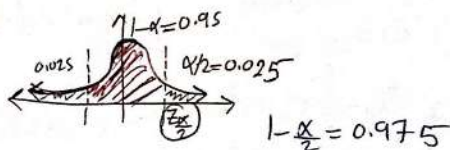 1-α=0.95
0.025
α/2=0.025
Zα/2
1-α/2=0.975